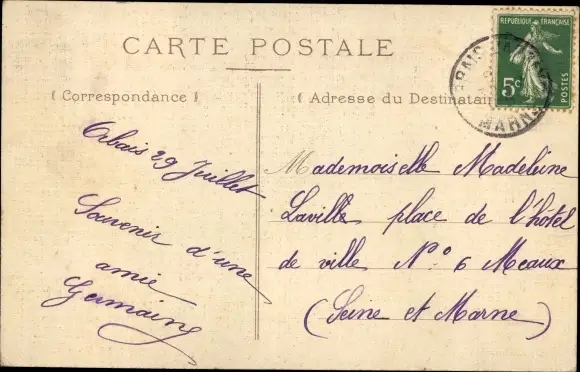 CARTE POSTALE
RÉPUBLIQUE FRANÇAISE
5c
POSTES
MARNE
( Correspondance )
( Adresse du Destinatair
Orbais 29 Juillet
Souvenir d'une
amie
Germaine
Mademoiselle Madeleine
Laville place de l'hôtel
de ville N.o 6 Meaux
(Seine et Marne)